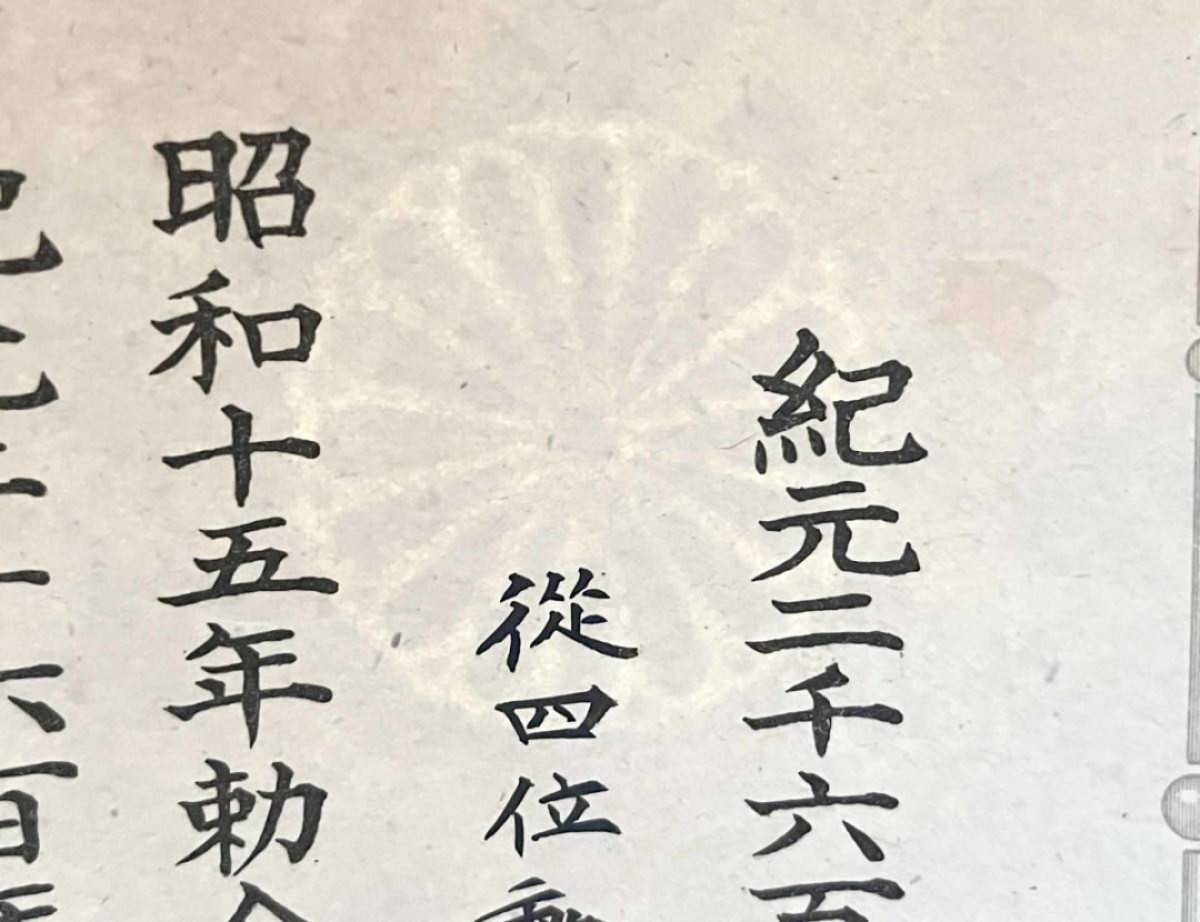 紀元二千六百
從四位
昭和十五年勅令
紀元二千六百年